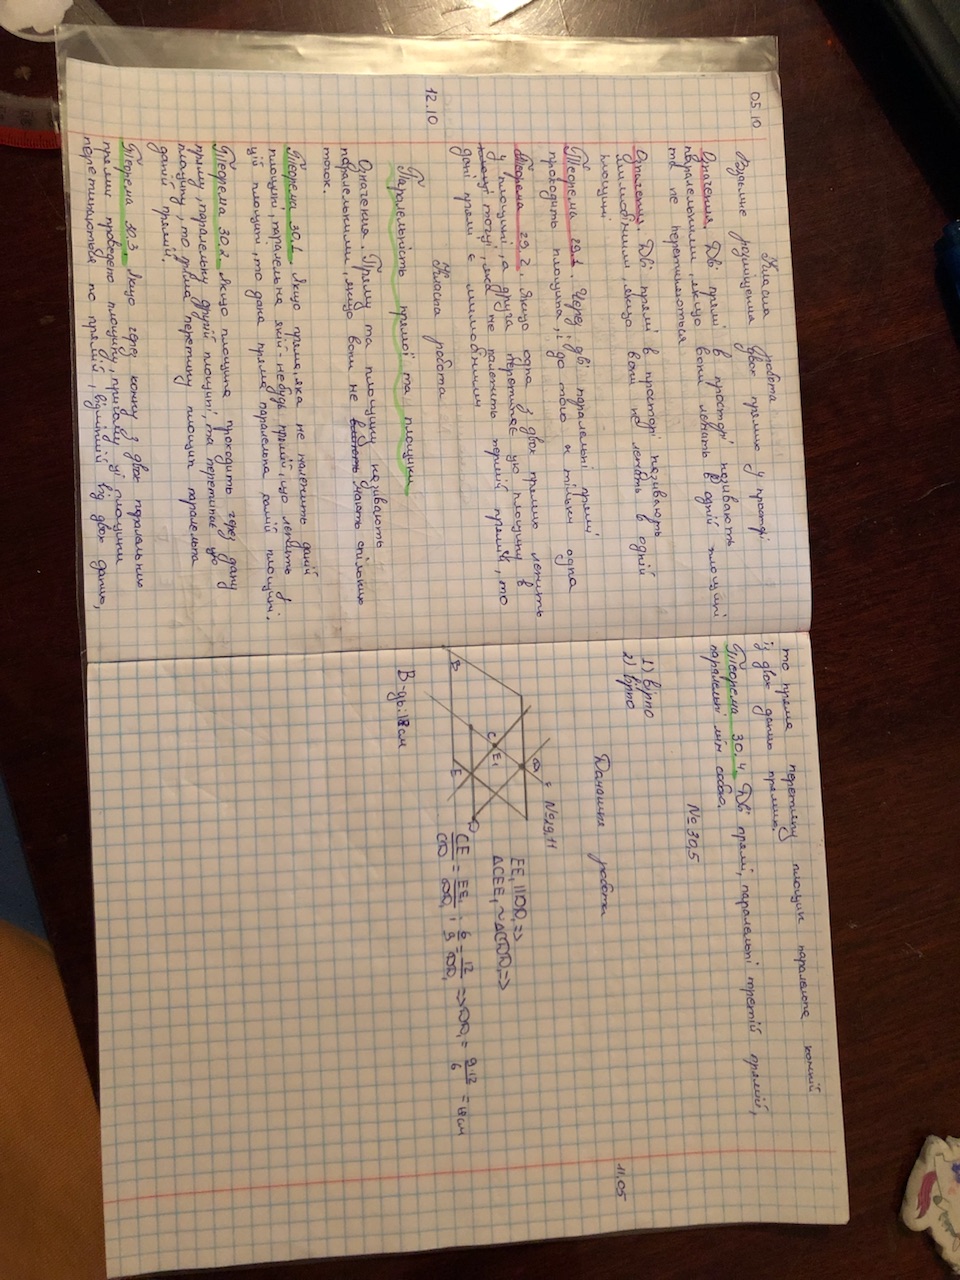 05.10
Класна робота
Взаємне розміщення двох прямих у просторі
Означення. Дві прямі в просторі називають
паралельними, якщо вони лежать в одній площині
та не перетинаються
Означення. Дві прямі в просторі називають
мимобіжними, якщо вони не лежать в одній
площині.
Теорема 29.1. Через дві паралельні прямі
проходить площина, і до того ж тільки одна
Теорема 29.2. Якщо одна з двох прямих лежить
у площині, а друга перетинає цю площину в
точці, яка не належить першій прямій, то
дані прямі є мимобіжними
12.10
Класна робота
Паралельність прямої та площини
Означення. Пряму та площину називають
паралельними, якщо вони не мають спільних
точок.
Теорема 30.1. Якщо пряма, яка не належить даній
площині, паралельна якій-небудь прямій, що лежить у
цій площині, то дана пряма паралельна самій площині.
Теорема 30.2. Якщо площина проходить через дану
пряму, паралельну другій площині, та перетинає цю
площину, то пряма перетину площин паралельна
даній прямій.
Теорема 30.3. Якщо через кожну з двох паралельних
прямих проведено площину, причому ці площини
перетинаються по прямій, відмінній від двох даних,
то пряма перетину площин паралельна кожній
із двох даних прямих.
Теорема 30.4. Дві прямі, паралельні третій прямій,
паралельні між собою.
№ 30.5
1) вірно
2) вірно
11.05
Домашня робота
№29.11
EE₁ || DD₁ =>
ΔCEE₁ ~ ΔCDD₁ =>
CE/CD = EE₁/DD₁; 6/9 = 12/DD₁ => DD₁ = 9·12/6 = 18 см
B
C
E₁
D₁
E
D
В-дь: 18 см